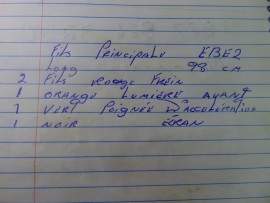 Fils Principale EBE2
Long 98 cm
2 Fils rouge Frein
1 ORANGE LUMIÈRE AVANT
1 VERT Poignée D'Accélération
1 NOIR ÉCRAN